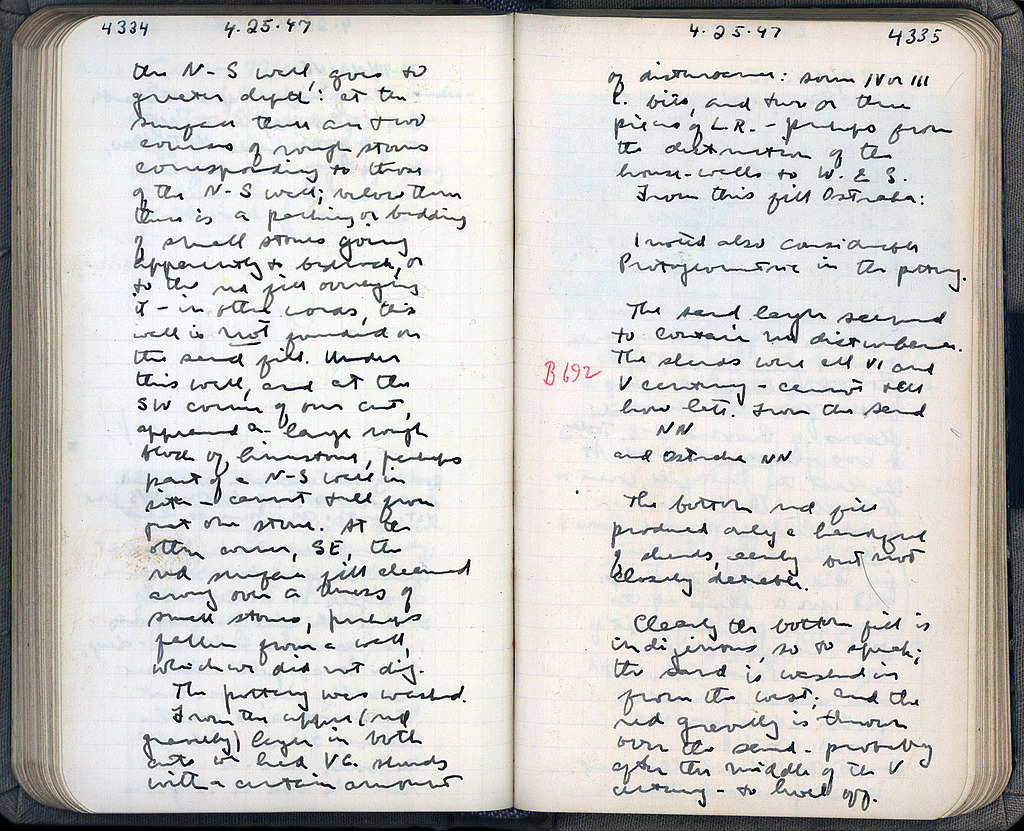 4334 4.25.47
the N-S wall, goes to
greater depth: at the
surface there are two
courses of rough stones
corresponding to those
of the N-S wall; below them
there is a packing or bedding
of small stones going
apparently to bedrock, or
to the red fill overlying
it - in other words, this
wall is not founded on
the sand fill. Under
this wall, and at the
SW corner of our cut,
appeared a large rough
block of limestone, perhaps
part of a N-S wall in
situ - cannot tell from
just one stone. At the
other corner, SE, the
red surface fill cleaned
away over a mass of
small stones, perhaps
fallen from a wall,
which we did not dig.
The pottery was washed.
From the upper (red
gravelly) layer in both
cuts we had V c. sherds
with a certain amount
4.25.47 4335
of disturbance: some IV or III
c. bits, and two or three
pieces of L.R. - perhaps from
the destruction of the
house-walls to W. & S.
From this fill Ostraka:
I noted also considerable
Protogeometric in the pottery.
The sand layer seemed
to contain no disturbance.
The sherds were all VI and
B 692
V century - cannot tell
how late. From the sand
NN
and Ostraka NN
The bottom red fill
produced only a handful
of sherds, early but not
closely datable.
Clearly the bottom fill is
indigenous, so to speak;
the sand is washed in
from the west; and the
red gravelly is thrown
over the sand - probably
after the middle of the V
century - to level off.